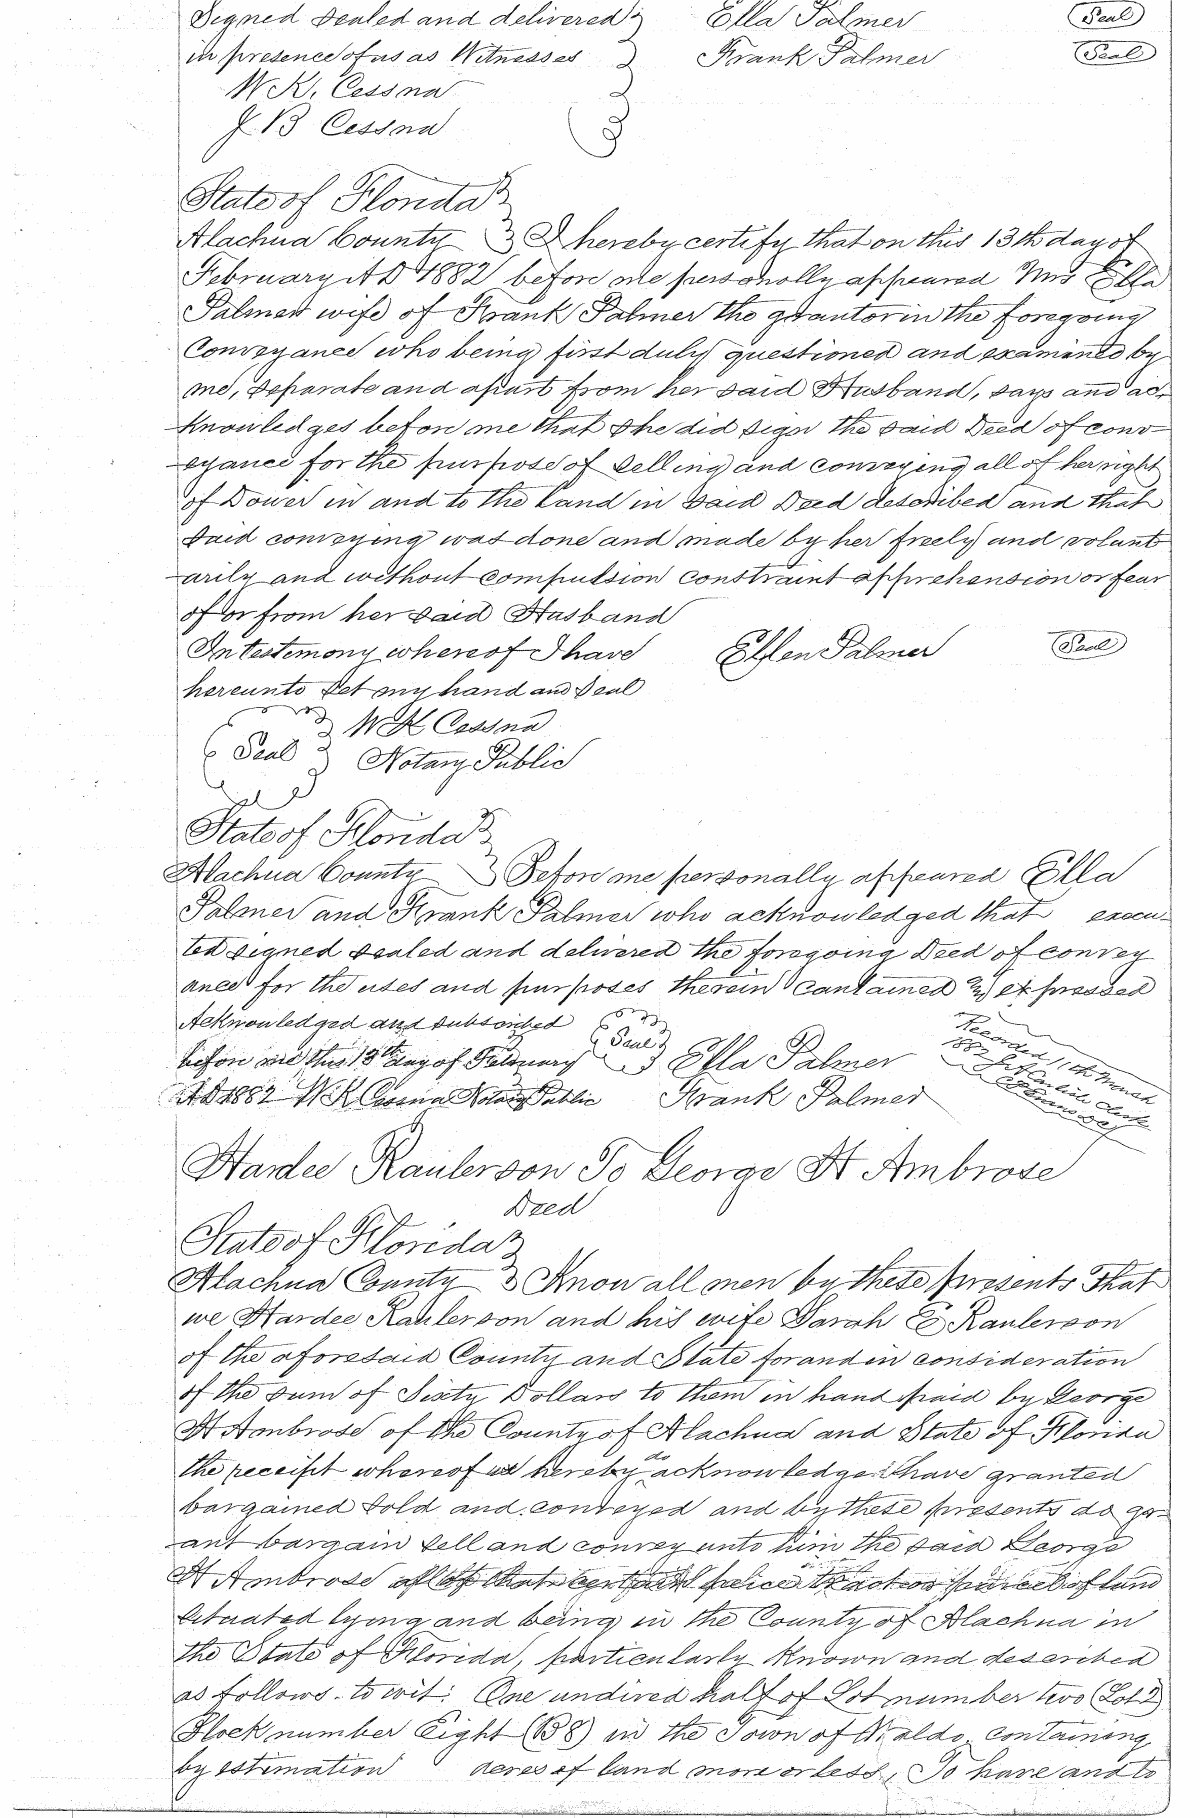 Signed sealed and delivered Ella Palmer (Seal)
in presence of us as Witnesses Frank Palmer (Seal)
W.K. Cessna
J B Cessna
State of Florida
Alachua County I hereby certify that on this 13th day of
February A D 1882 before me personally appeared Mrs Ella
Palmer wife of Frank Palmer the grantor in the foregoing
Conveyance who being first duly questioned and examined by
me, separate and apart from her said Husband, says and ac-
knowledges before me that she did sign the said Deed of conv-
-eyance for the purpose of selling and conveying all of her right
of Dower in and to the Land in said Deed described and that
said conveying was done and made by her freely and volunt
-arily and without compulsion constraint apprehension or fear
of or from her said Husband
In testimony whereof I have Ellen Palmer (Seal)
hereunto set my hand and Seal
W K Cessna
(Seal) Notary Public
State of Florida
Alachua County Before me personally appeared Ella
Palmer and Frank Palmer who acknowledged that execu-
ted signed sealed and delivered the foregoing Deed of convey
ance for the uses and purposes therein contained & expressed
Acknowledged and subscribed
before me this 13th day of February (Seal) Ella Palmer
A D 1882 W K Cessna Notary Public Frank Palmer
Recorded 11th March
1882 Clerk
Hardee Raulerson To George H Ambrose
Deed
State of Florida
Alachua County Know all men by these presents That
we Hardee Raulerson and his wife Sarah E Raulerson
of the aforesaid County and State for and in consideration
of the sum of Sixty Dollars to them in hand paid by George
H Ambrose of the County of Alachua and State of Florida
the receipt whereof hereby do acknowledge have granted
bargained sold and conveyed and by these presents do gr-
-ant bargain sell and convey unto him the said George
H Ambrose all of that certain peice tract or parcel of land
situated lying and being in the County of Alachua in
the State of Florida, particularly known and described
as follows. to wit: One undired half of Lot number two (Lot 2)
Block number Eight (B 8) in the Town of Waldo containing
by estimation acres of land more or less, To have and to